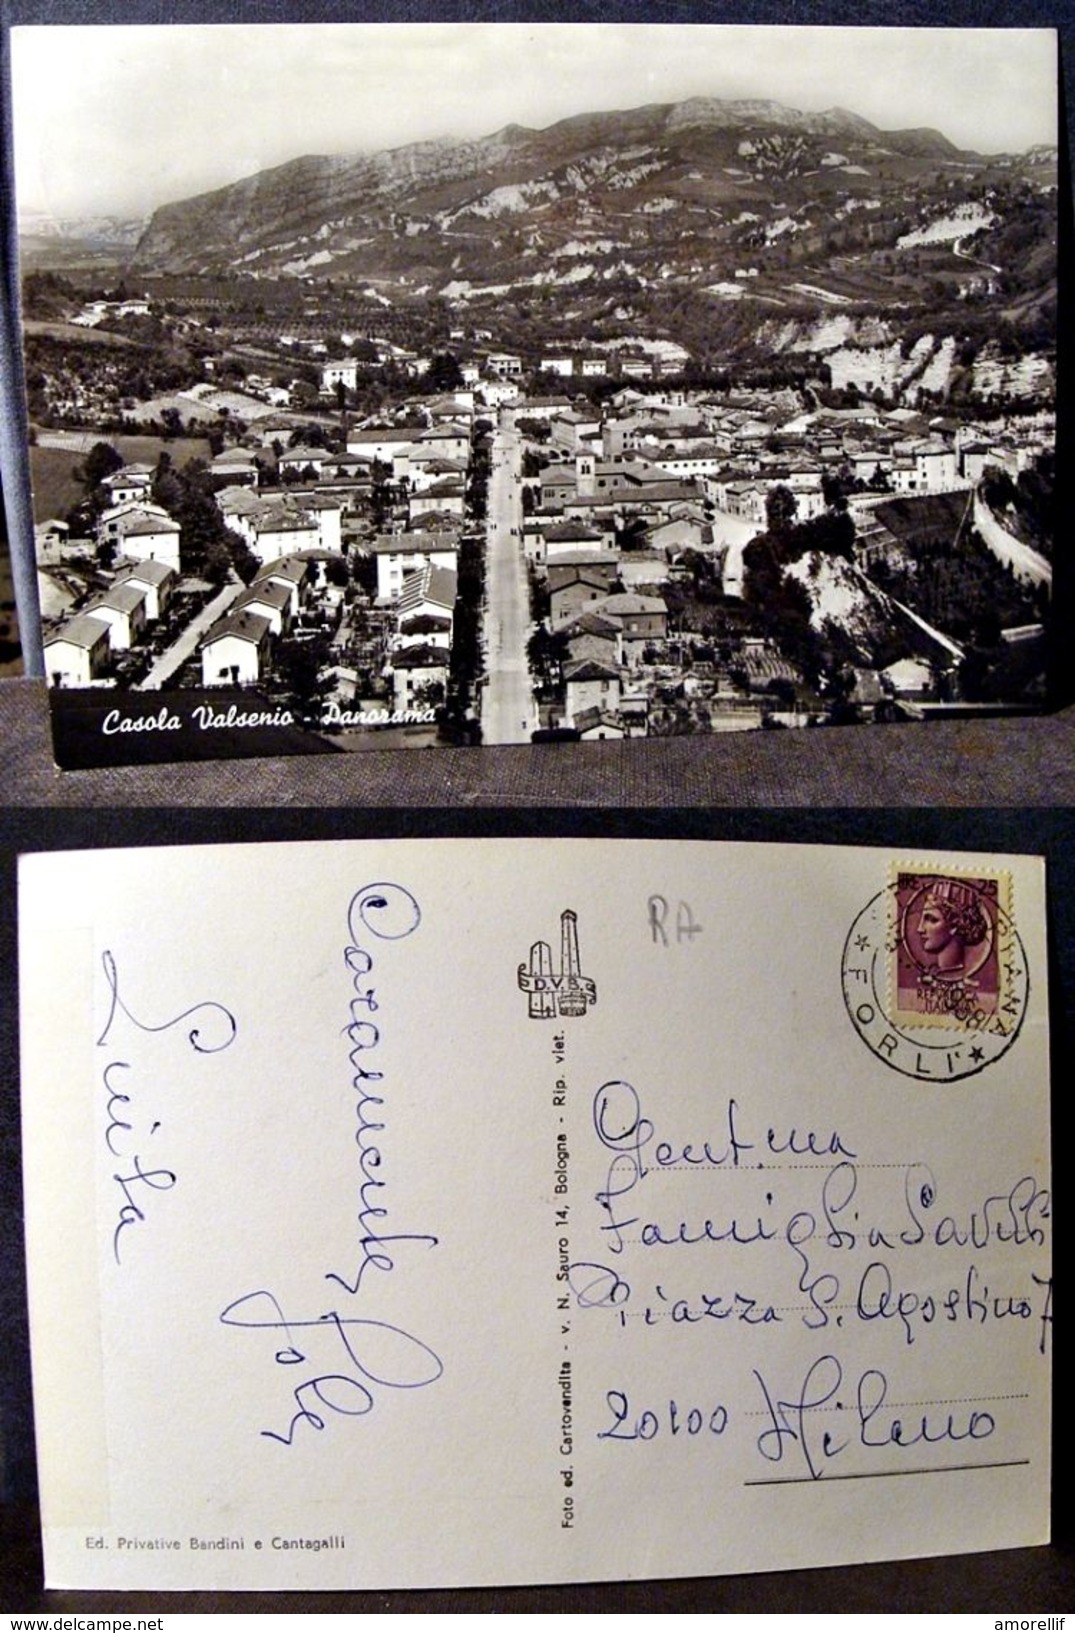 Casola Valsenio - Panorama
Luisa
Caramente
RA
D.V.B.
Foto ed. Cartovendita - v. N. Sauro 14, Bologna - Rip. viet.
LIRE 25
FORLI'
1968
Gent.ma
Famiglia Savelli
Piazza S. Agostino 7
20100 Milano
Ed. Privative Bandini e Cantagalli
amorellif